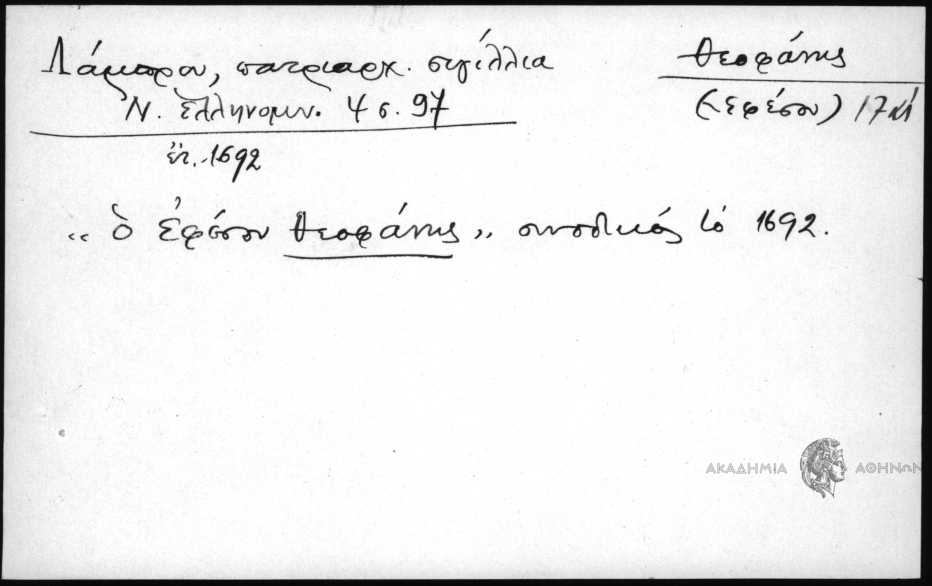 Λάμπρου, πατριαρχ. σιγίλλια
Ν. Ἑλληνομν. 4 σ. 97
ἔτ. 1692
Θεοφάνης
(Ἐφέσου) 17
„ ὁ Ἐφέσου Θεοφάνης „ συνοδικός τὸ 1692.
ΑΚΑΔΗΜΙΑ ΑΘΗΝΩΝ